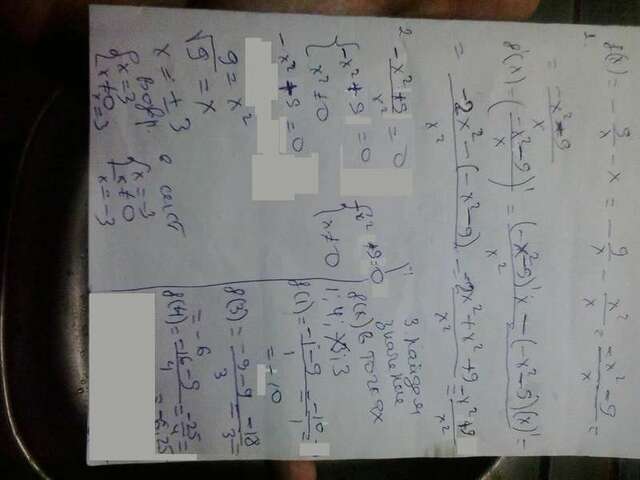 1.
f(x) = - 9/x - x = - 9/x - x²/x = -x²-9/x =
= -x²-9/x
f'(x) = (-x²-9/x)' = (-x²-9)'x - (-x²-9)(x)'/x² =
= -2x² - (-x²-9)/x² = -2x²+x²+9/x² = -x²+9/x²
2 -x²+9/x² = 0
{-x²+9 = 0
x² ≠ 0
{x²+9=0
x≠0
-x²+9 = 0
9 = x²
√9 = x
x = ± 3
{x=3
x≠0
x=3
{x=-3
x≠0
x=-3
3 найдем
значение
f(x) в точках
1; 4; 3
f(1) = -1-9/1 = -10/1 =
= -10
f(3) = -9-9/3 = -18/3 =
= -6
f(4) = -16-9/4 = -25/4 = -6,25